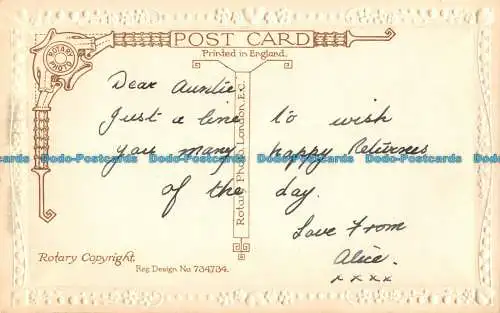 POST CARD
Printed in England.
ROTARY PHOTO
Dear Auntie.
Just a line to wish
you many happy Returnes
of the day.
Love From
Alice.
x x x x
Rotary Photo, London, E.C.
Dodo-Postcards Dodo-Postcards Dodo-Postcards Dodo-Postcards
Rotary Copyright.
Reg Design No 734734.